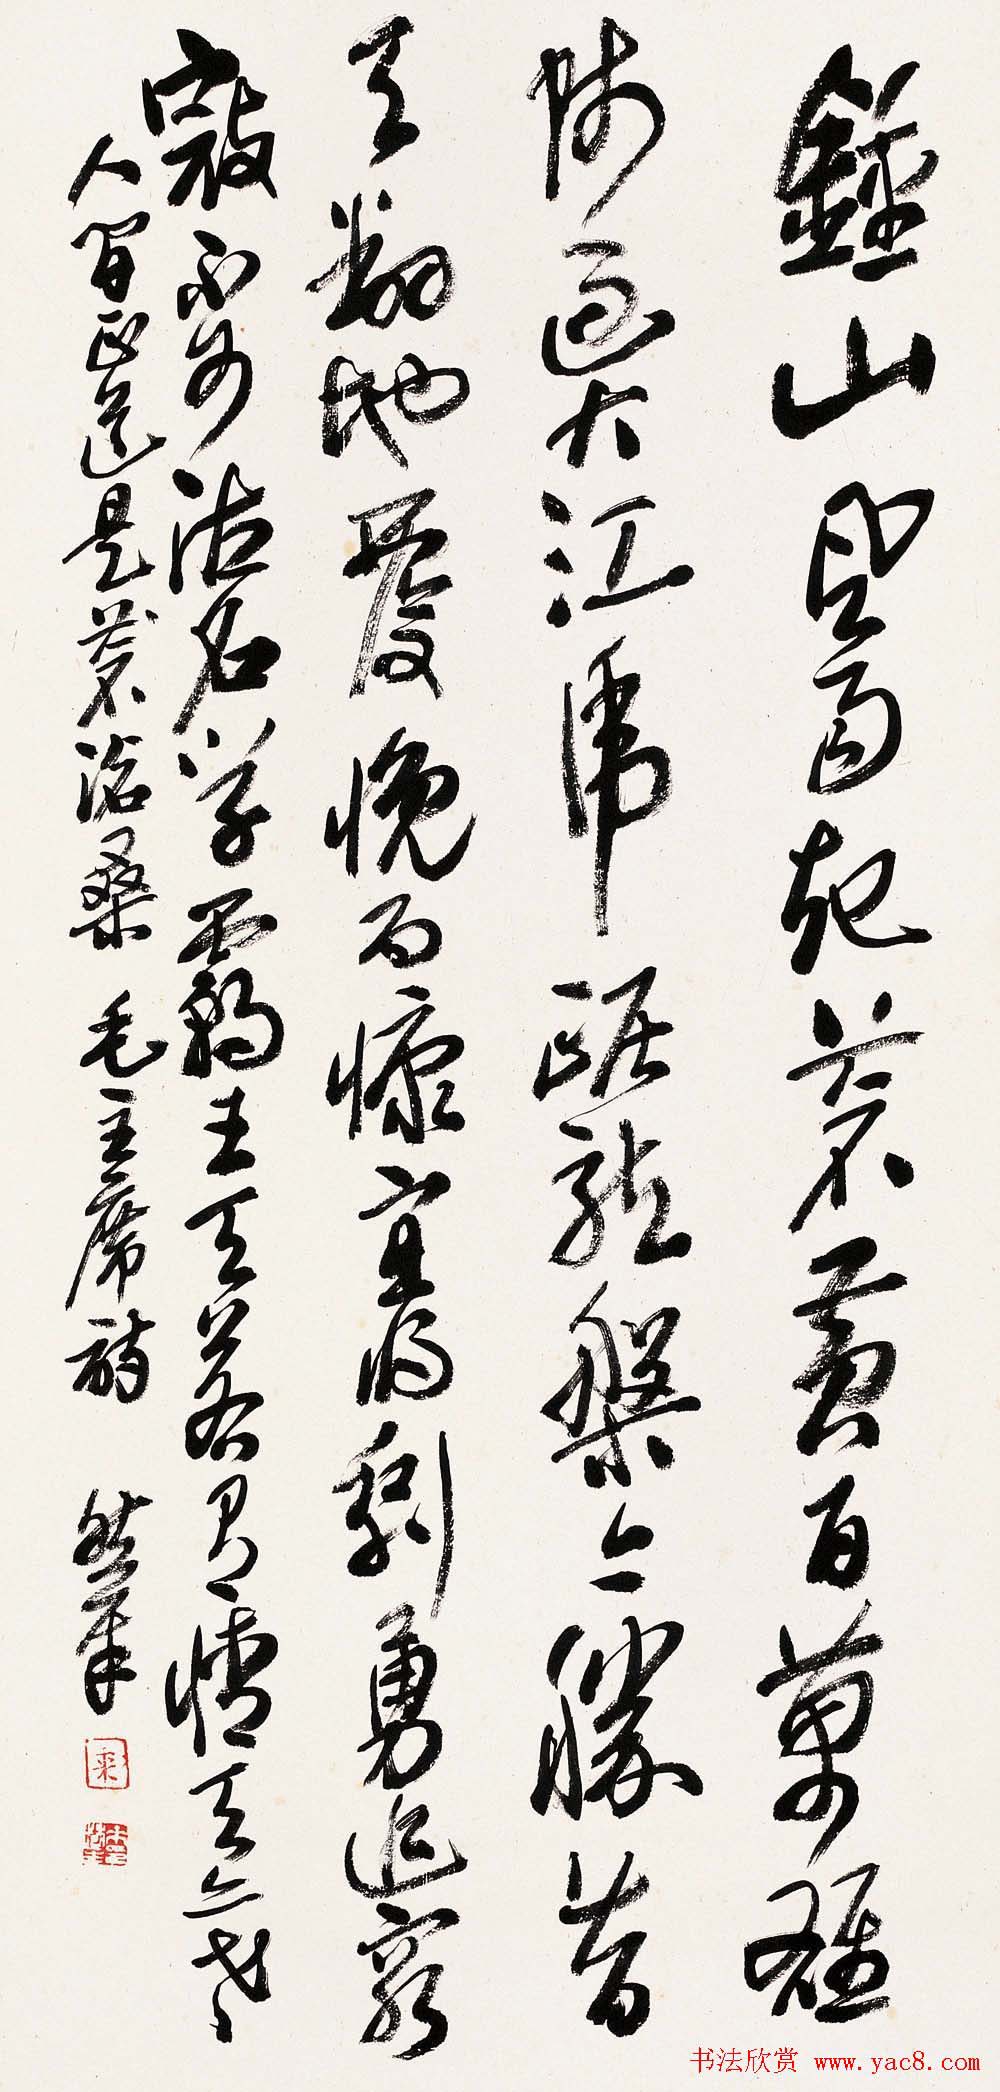 鍾山風雨起蒼黄百萬雄
師過大江虎踞龍盤今勝昔
天翻地覆慨而慷宜將剩勇追窮
寇不可沽名學霸王天若有情天亦老
人間正道是蒼滄桑 毛主席詩
书法欣赏 www.yac8.com